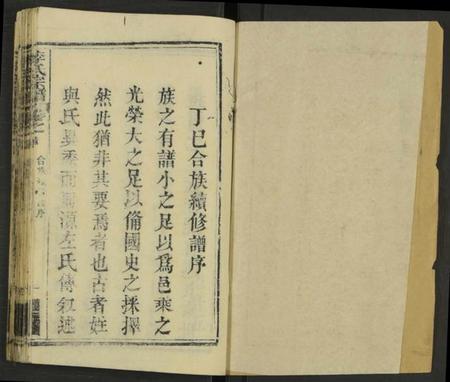 丁巳合族續修譜序
族之有譜小之足以為邑乘之
光榮大之足以備國史之採擇
然此猶非其要焉者也古者姓
與氏異季而同源左氏傳敘述
氏宗譜